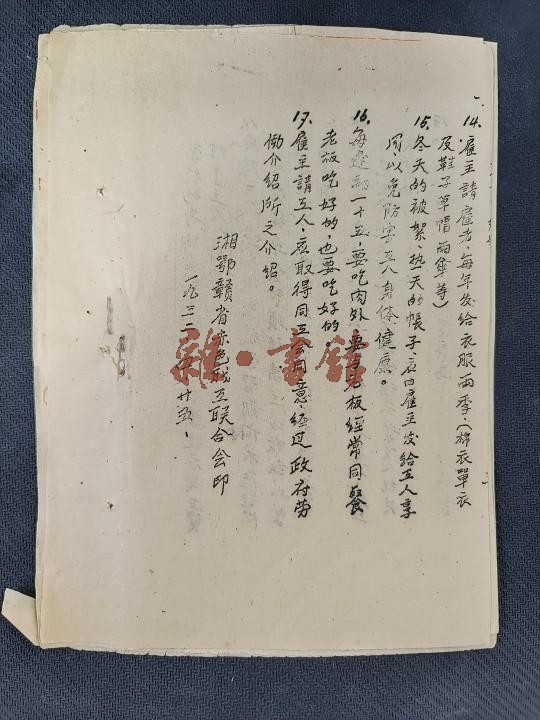 14.雇主請雇老，每年发给衣服兩季，(棉衣單衣
及鞋子草帽雨傘等)
15.冬天的被絮，热天的帳子，应由雇主发给工人享
用，以免防害工人身体健康。
16.每逢初一十五，要吃肉外，要与老板經常同餐
老板吃好的，也要吃好的。
17.雇主請工人，应取得同工会同意，經过政府劳
働介紹所之介绍。
湘鄂赣省赤色成工联合会印
一九三二 廿五、
雜·書館